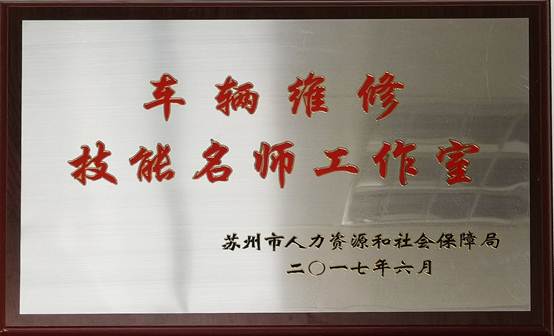 车辆维修
技能名师工作室
苏州市人力资源和社会保障局
二〇一七年六月